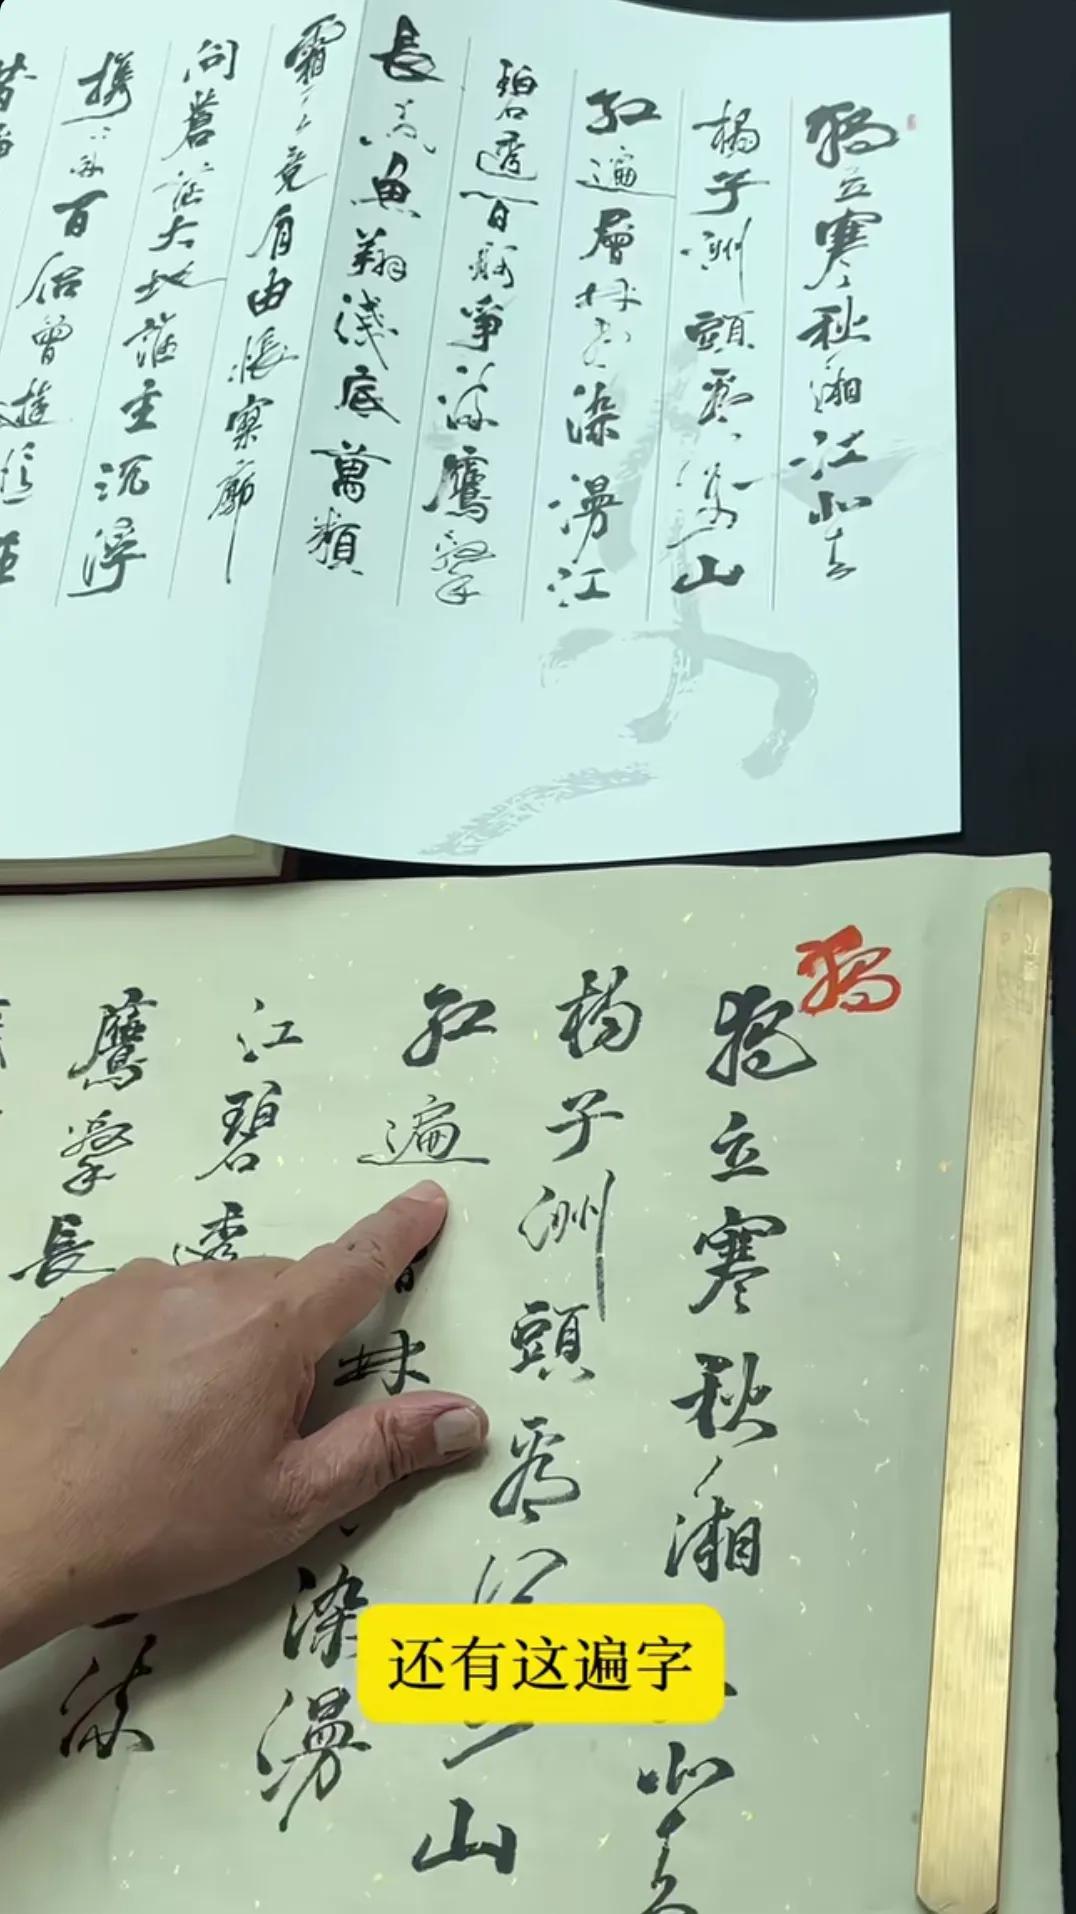 獨立寒秋湘江北去
橘子洲頭看萬山
紅遍層林盡染漫江
碧透百舸爭流鷹擊
長空魚翔淺底萬類
霜天竞自由悵寥廓
问蒼茫大地誰主沉浮
攜来百侣曾遊
獨
獨立寒秋湘北去
橘子洲頭看萬山
紅遍林染漫
江碧透
鷹擊長
还有这遍字